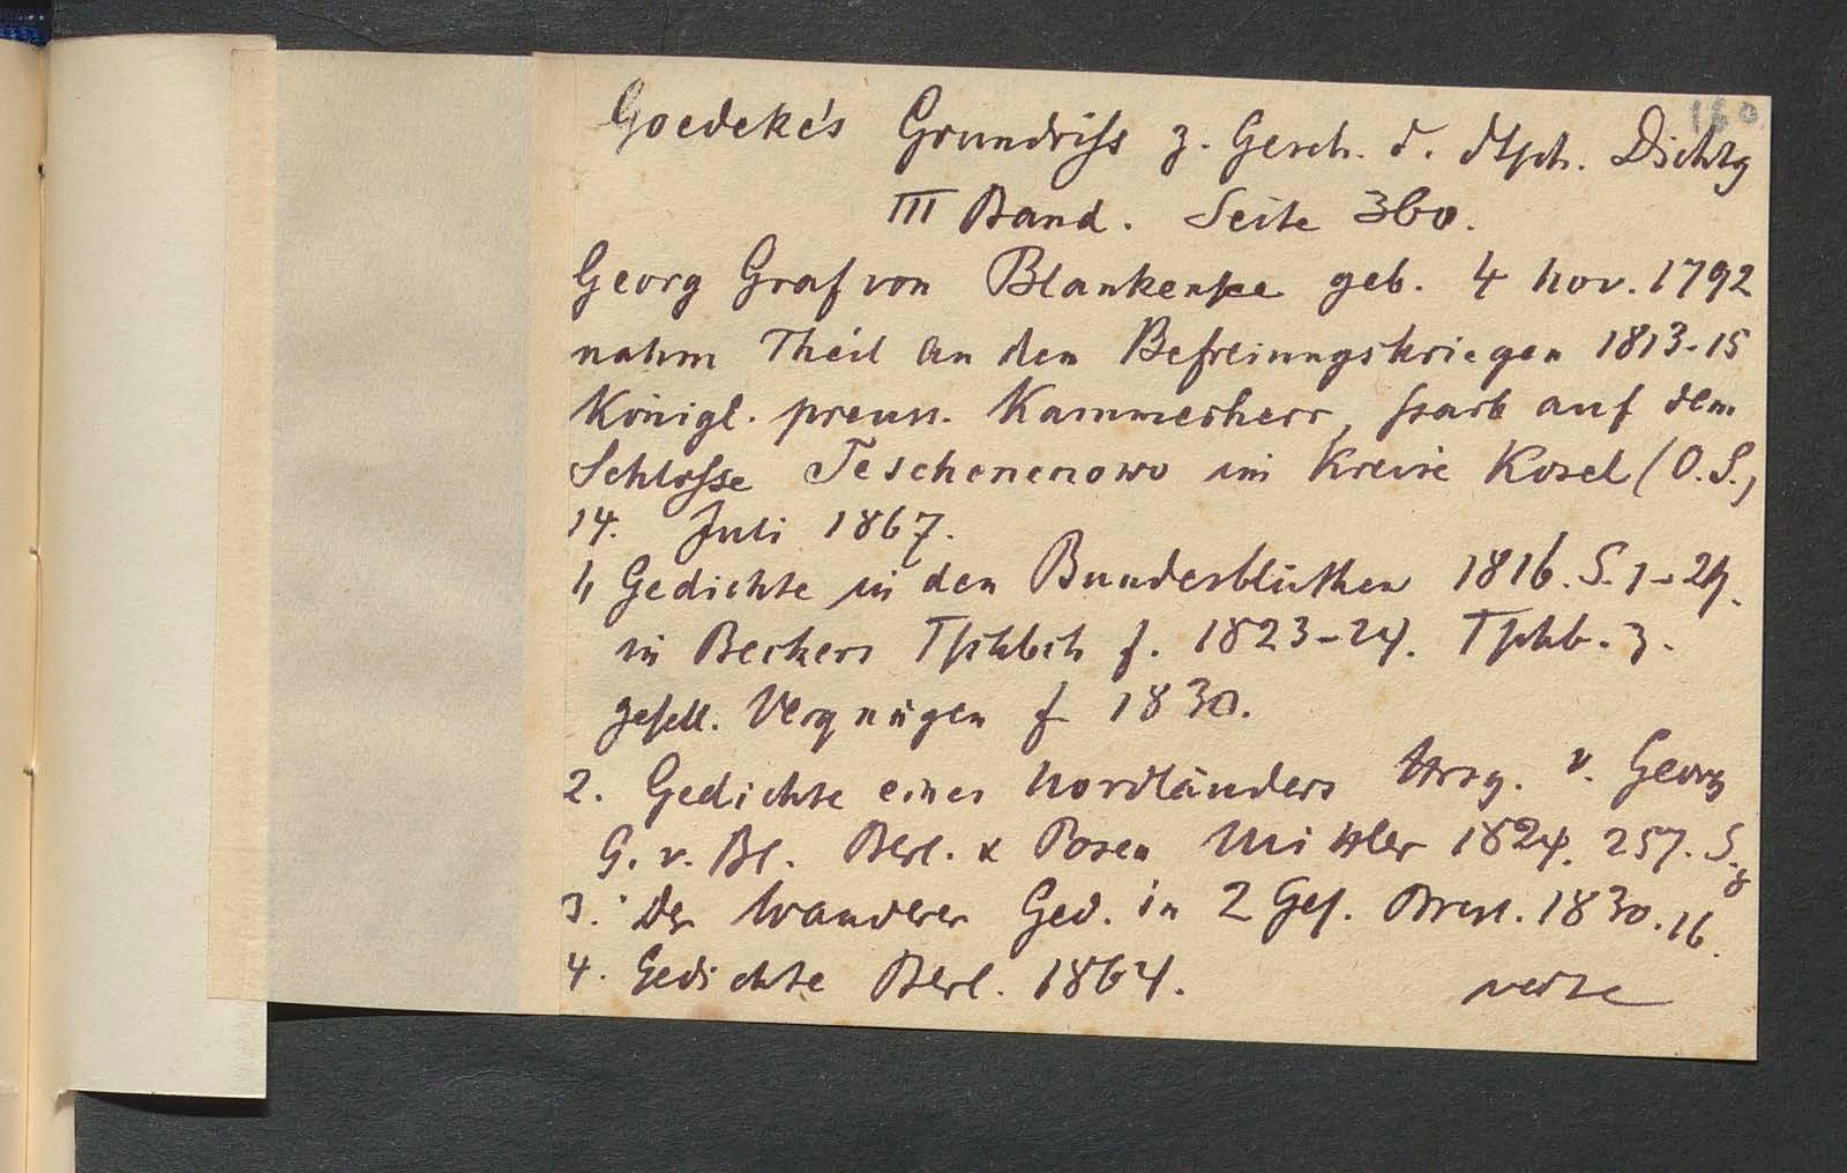 160
Goedeke's Grundriss z. Gesch. d. dtsch. Dichtg
III Band. Seite 360.
Georg Graf von Blankensee geb. 4 Nov. 1792
nahm Theil an den Befreiungskriegen 1813-15
Königl. preuss. Kammerherr, starb auf dem
Schlosse Teschenenowo im Kreise Kosel (O.S.)
14. Juli 1867.
1) Gedichte in den Bundesblüthen 1816. S. 1-24.
in Beckers Tschbch f. 1823-24. Tschb. z.
gesell. Vergnügen f 1830.
2. Gedichte eines Nordländers Hrsg. v. Georg
G. v. Bl. Berl. & Posen Mittler 1824. 257. S. 8
3. Der Wanderer Ged. in 2 Ges. Bresl. 1830. 16.
4. Gedichte Berl. 1864. verte